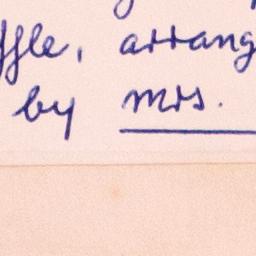 ffle, arrang
by Mrs.